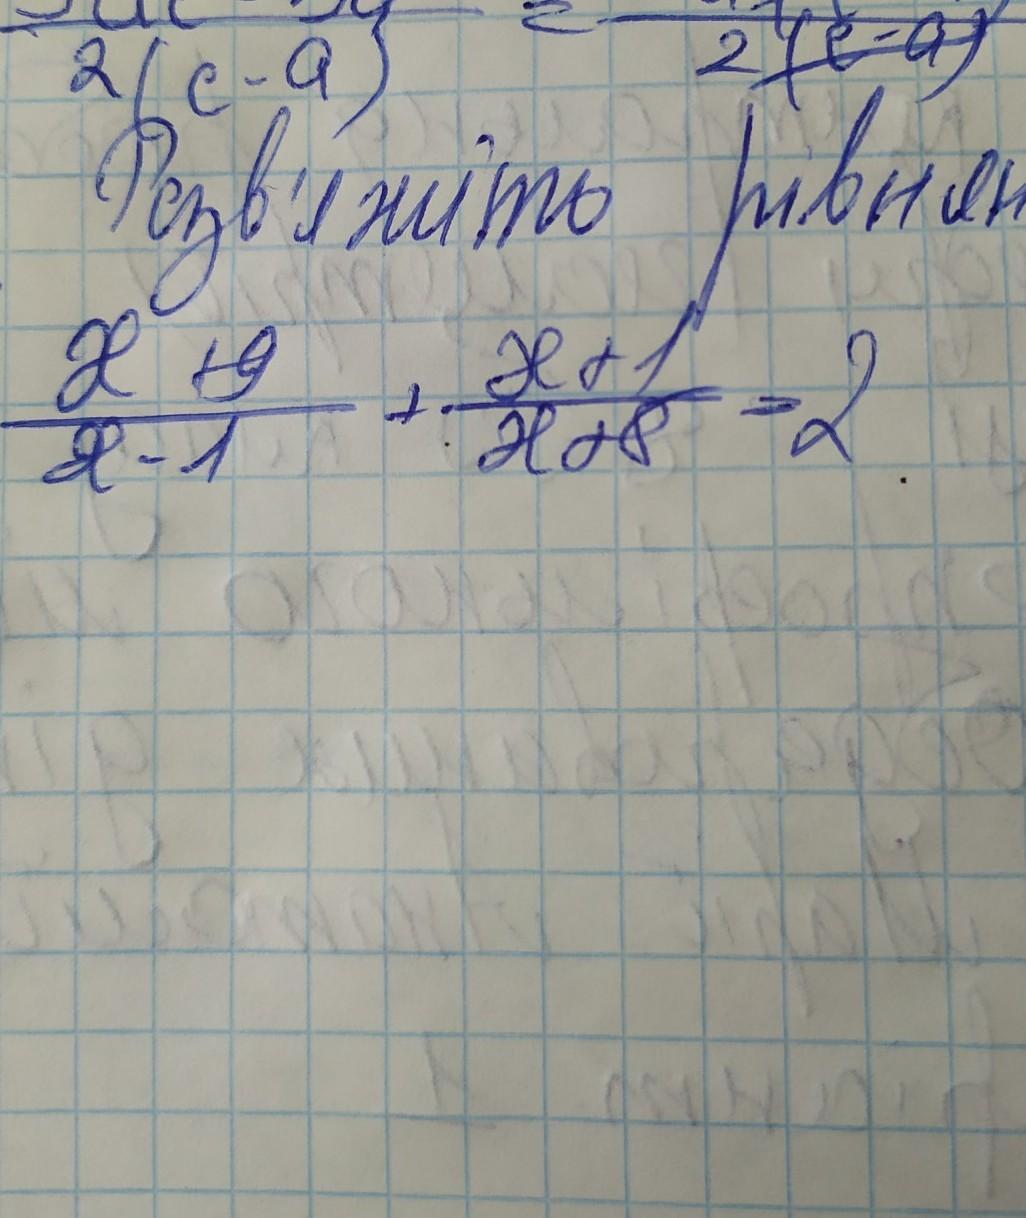 2(c-a) = 2(c-a)
Розв'яжіть рівнян
x+9/x-1 + x+1/x+8 = 2